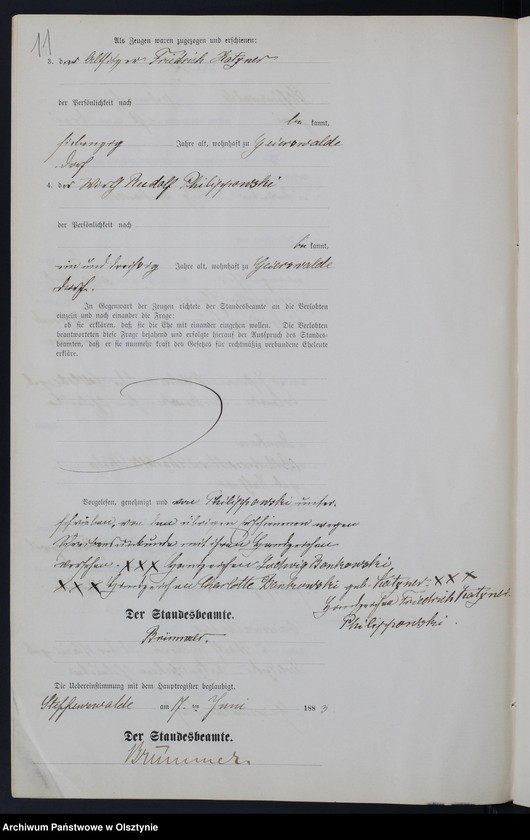 11
Als Zeugen waren zugezogen und erschienen:
3. der Altsitzer Friedrich Katzner
der Persönlichkeit nach
be kannt,
siebenzig Jahre alt, wohnhaft zu Geierswalde
Dorf
4. der Wirth Rudolf Philippowski
der Persönlichkeit nach
be kannt,
ein und dreißig Jahre alt, wohnhaft zu Geierswalde
Dorf.
In Gegenwart der Zeugen richtete der Standesbeamte an die Verlobten
einzeln und nach einander die Frage:
ob sie erklären, daß sie die Ehe mit einander eingehen wollen. Die Verlobten
beantworteten diese Frage bejahend und erfolgte hierauf der Ausspruch des Standes-
beamten, daß er sie nunmehr kraft des Gesetzes für rechtmäßig verbundene Eheleute
erkläre.
Vorgelesen, genehmigt und von Philippowski unter-
schrieben, von den übrigen Erschienenen wegen
Schreibensunkunde mit ihren Handzeichen
versehen. XXX Handzeichen Ludwig Bonkowski,
XXX Handzeichen Charlotte Bonkowski geb. Katzner. XXX
Handzeichen Friedrich Katzner.
Philippowski.
Der Standesbeamte.
Brümmer.
Die Uebereinstimmung mit dem Hauptregister beglaubigt.
Steffenswalde am 17. ten Juni 188
Der Standesbeamte.
Brümmer.
Archiwum Państwowe w Olsztynie